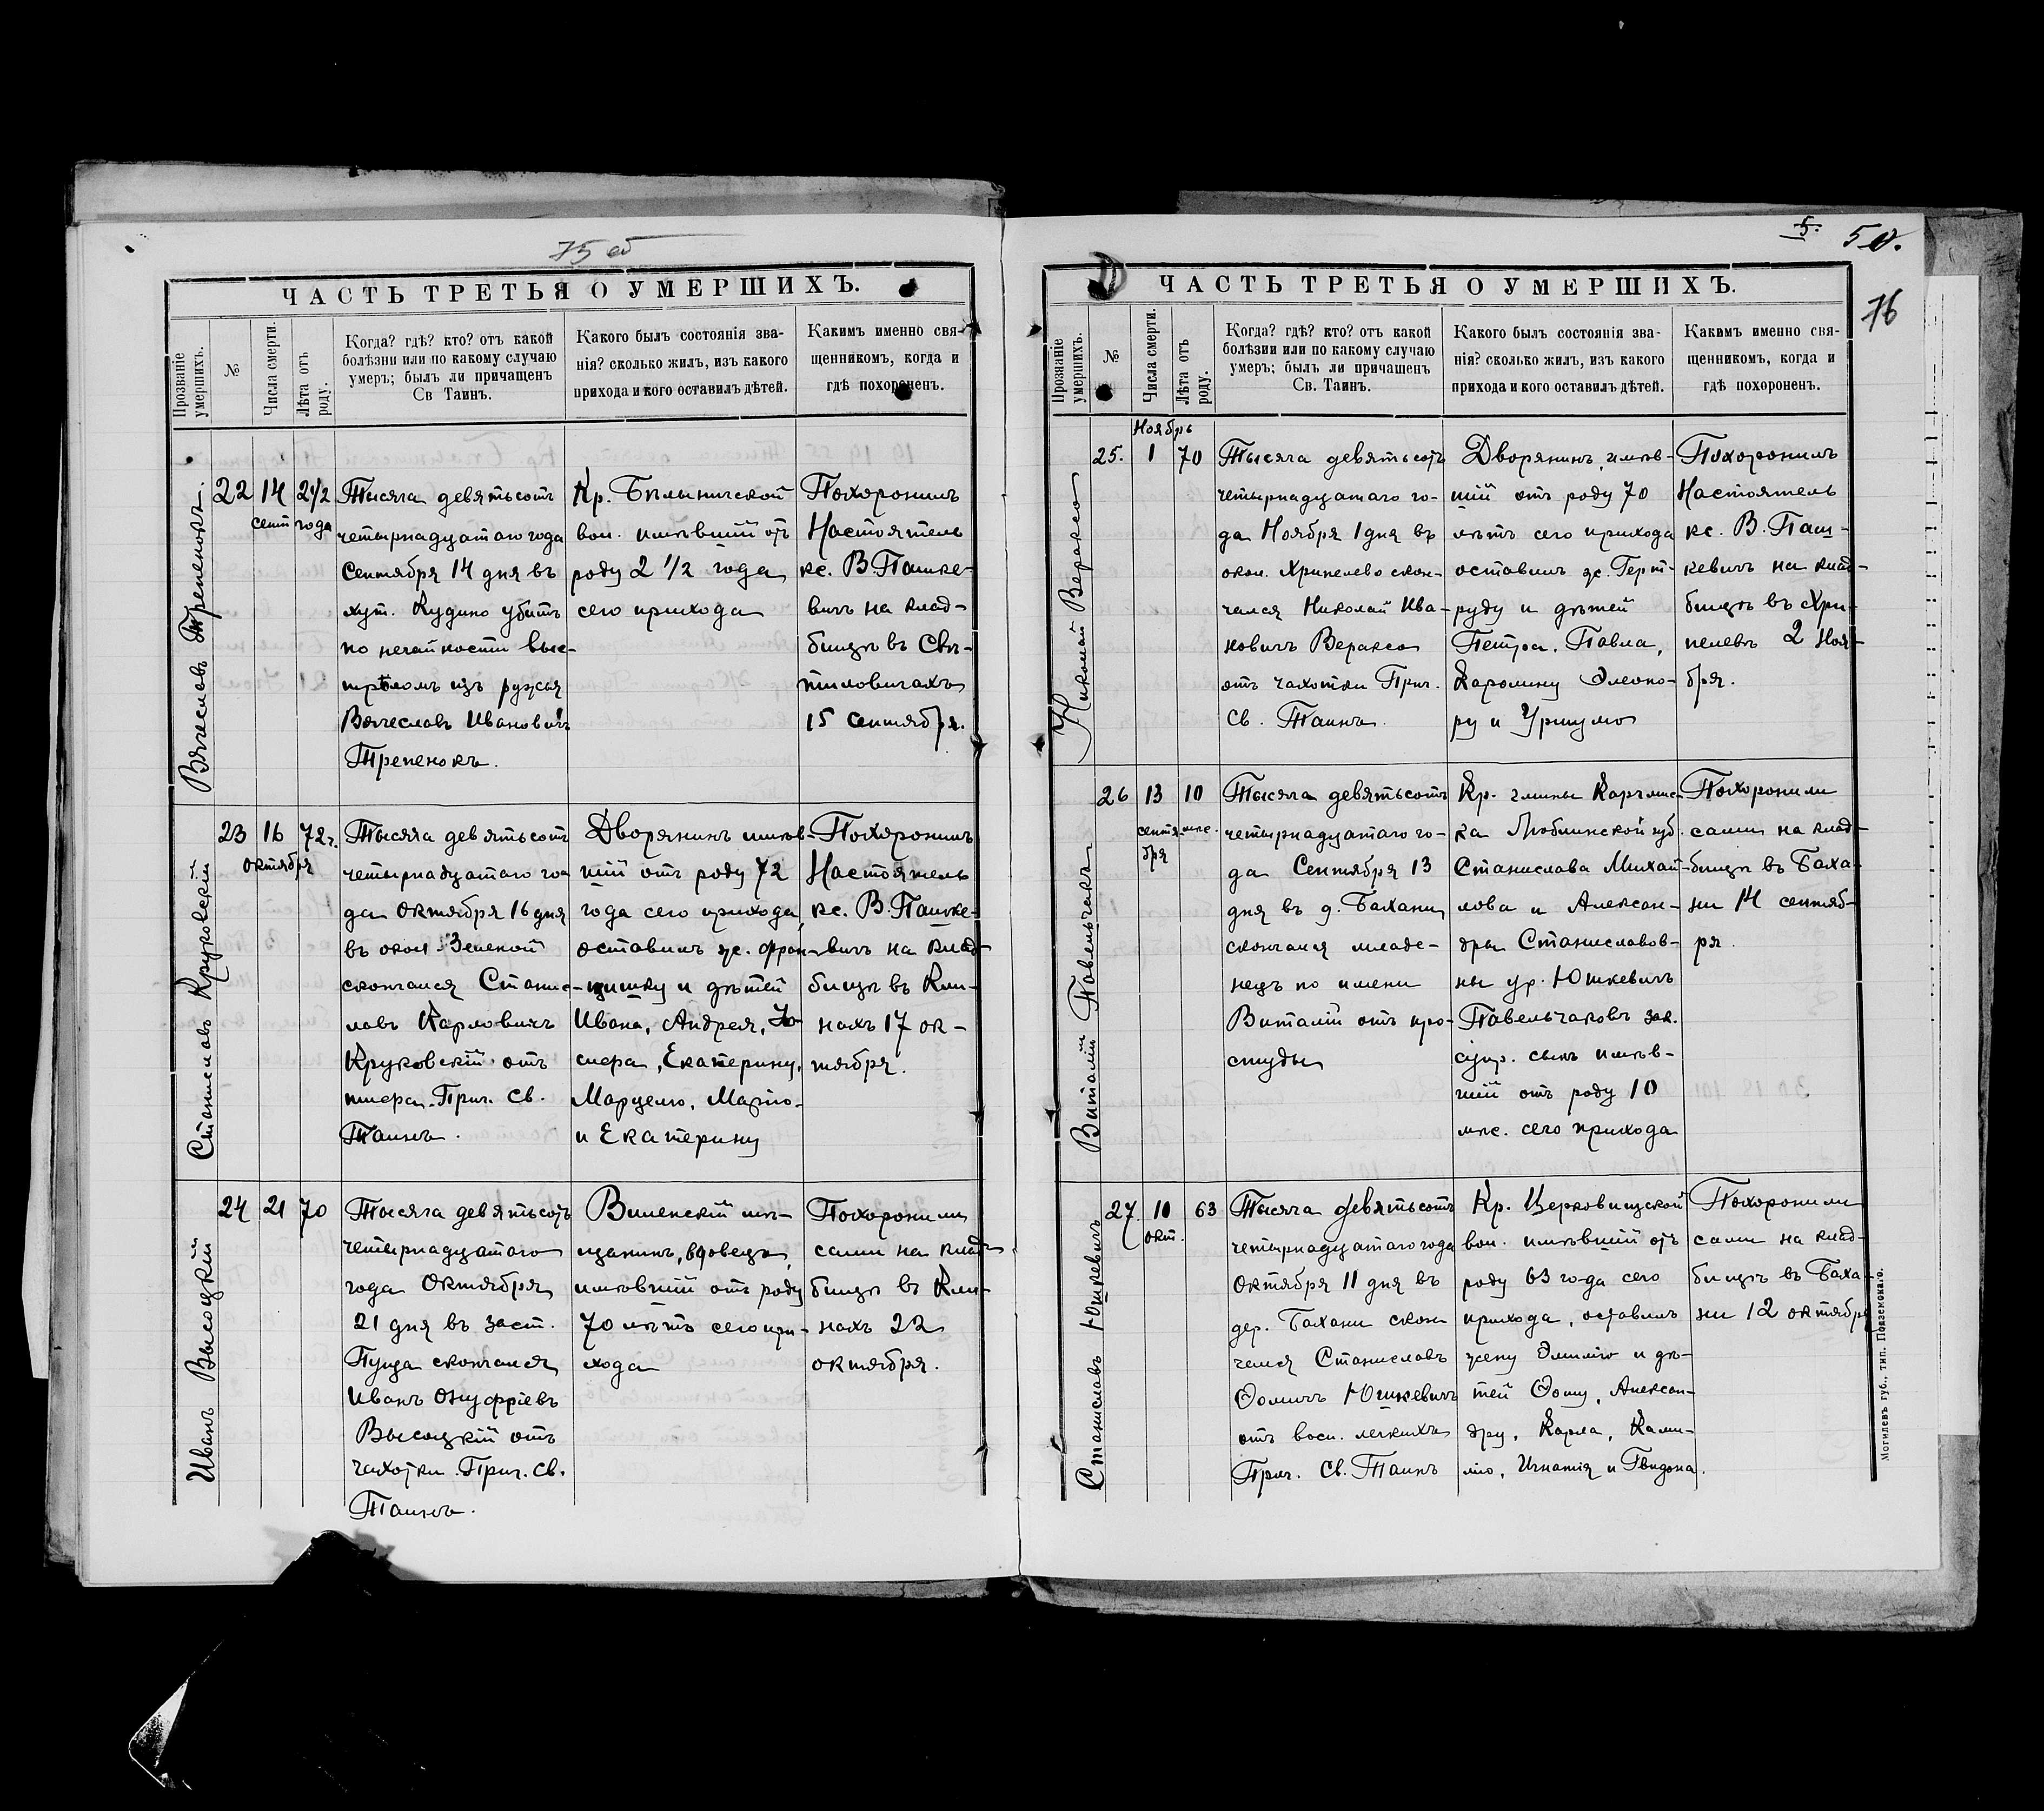 75 об
ЧАСТЬ ТРЕТЬЯ О УМЕРШИХЪ.
Прозваніе умершихъ.
№
Числа смерти.
Лѣта отъ роду.
Когда? гдѣ? кто? отъ какой
болѣзни или по какому случаю
умеръ; былъ ли причащенъ
Св Таинъ.
Какого былъ состоянія зва-
нія? сколько жилъ, изъ какого
прихода и кого оставилъ дѣтей.
Какимъ именно свя-
щенникомъ, когда и
гдѣ похороненъ.
Вячеславъ Трепенокъ.
22
14
сент
2 1/2
года
Тысяча девятьсотъ
четырнадцатаго года
Сентября 14 дня въ
хут. Кудино убитъ
по нечайности выс-
трѣломъ изъ ружья
Вячеславъ Ивановичъ
Трепенокъ.
Кр. Бѣлыничской
вол. имѣвшій отъ
роду 2 1/2 года
сего прихода
Похоронилъ
Настоятель
кс. В. Пашке-
вичъ на клад-
бищѣ въ Свѣ-
тиловичахъ
15 Сентября.
Станиславъ Круковскій
23
16
октября
72 г.
Тысяча девятьсотъ
четырнадцатаго го-
да Октября 16 дня
въ окол. Зеленой
скончался Станис-
лавъ Карловичъ
Круковскій отъ
тифа. Прич. Св.
Таинъ.
Дворянинъ имѣв-
шій отъ роду 72
года сего прихода,
оставилъ ж. Фран-
цишку и дѣтей
Ивана, Андрея, Ю-
Екатерину,
Марцелю, Марію-
и Екатерину
Похоронилъ
Настоятель
кс. В. Пашке-
вичъ на клад-
бищѣ въ Кли-
нахъ 17 ок-
тября.
Иванъ Высоцкій
24
21
70
Тысяча девятьсотъ
четырнадцатаго
года Октября
21 дня въ заст.
Пуща скончался
Иванъ Онуфріевъ
Высоцкій отъ
чахотки. Прич. Св.
Таинъ.
Виленскій мѣ-
щанинъ, вдовецъ,
имѣвшій отъ роду
70 лѣтъ сего при-
хода
Похоронили
сами на клад-
бищѣ въ Кли-
нахъ 22
октября.
5.
50.
76
ЧАСТЬ ТРЕТЬЯ О УМЕРШИХЪ.
Прозваніе умершихъ.
№
Числа смерти.
Лѣта отъ роду.
Когда? гдѣ? кто? отъ какой
болѣзни или по какому случаю
умеръ; былъ ли причащенъ
Св. Таинъ.
Какого былъ состоянія зва-
нія? сколько жилъ, изъ какого
прихода и кого оставилъ дѣтей.
Какимъ именно свя-
щенникомъ, когда и
гдѣ похороненъ.
Николай Веракса
25.
Ноябрь
1
70
Тысяча девятьсотъ
четырнадцатаго го-
да Ноября 1 дня въ
окол. Хрипелево скон-
чался Николай Ива-
новичъ Веракса
отъ чахотки Прич.
Св. Таинъ.
Дворянинъ, имѣв-
шій отъ роду 70
лѣтъ сего прихода
оставилъ ж. Герт-
руду и дѣтей
Петра, Павла,
Каролину Элеоно-
ру и Уршулю
Похоронилъ
Настоятель
кс. В. Паш-
кевичъ на клад-
бищѣ въ Хри-
пелевѣ 2 Ноя-
бря.
Виталій Павельчакъ
26
13
сентя-
бря
10
мѣс.
Тысяча девятьсотъ
четырнадцатаго го-
да Сентября 13
дня въ д. Бахани
скончался младе-
нецъ по имени
Виталій отъ про-
студы
Кр. гмины Карчмис-
ка Люблинской губ.
Станислава Михай-
лова и Алексан-
дры Станиславов-
ны ур. Юшкевичъ
Павельчаковъ зак.
супр. сынъ имѣв-
шій отъ роду 10
мѣс. сего прихода
Похоронили
сами на клад-
бищѣ въ Баха-
ни 14 сентяб-
ря.
Станиславъ Юшкевичъ
27
10
окт.
63
Тысяча девятьсотъ
четырнадцатаго года
Октября 11 дня въ
дер. Бахани скон
чался Станиславъ
Ѳомичъ Юшкевичъ
отъ восп. легкихъ
Прич. Св. Таинъ
Кр. Церковищской
вол. имѣвшій отъ
роду 63 года сего
прихода, оставилъ
жену Эмилію и дѣ-
тей Ѳому, Алексан-
дру, Карла, Ками-
лю, Игнатія и Гвидона.
Похоронили
сами на клад-
бищѣ въ Баха-
ни 12 октября
Могилевъ губ., тип. Подземскаго.